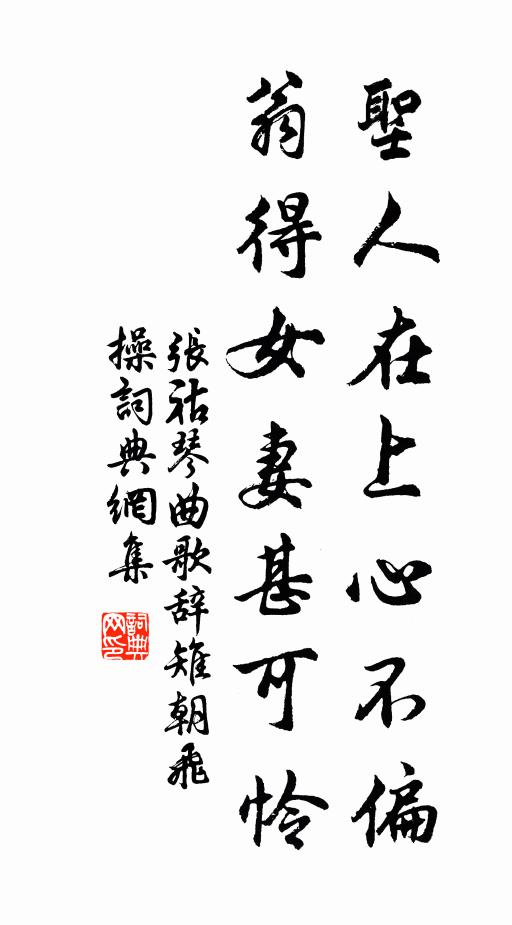 聖人在上心不偏
翁得女妻甚可怜
張祜琴曲歌辞雉朝飛
操詞典網集
詞典
网印